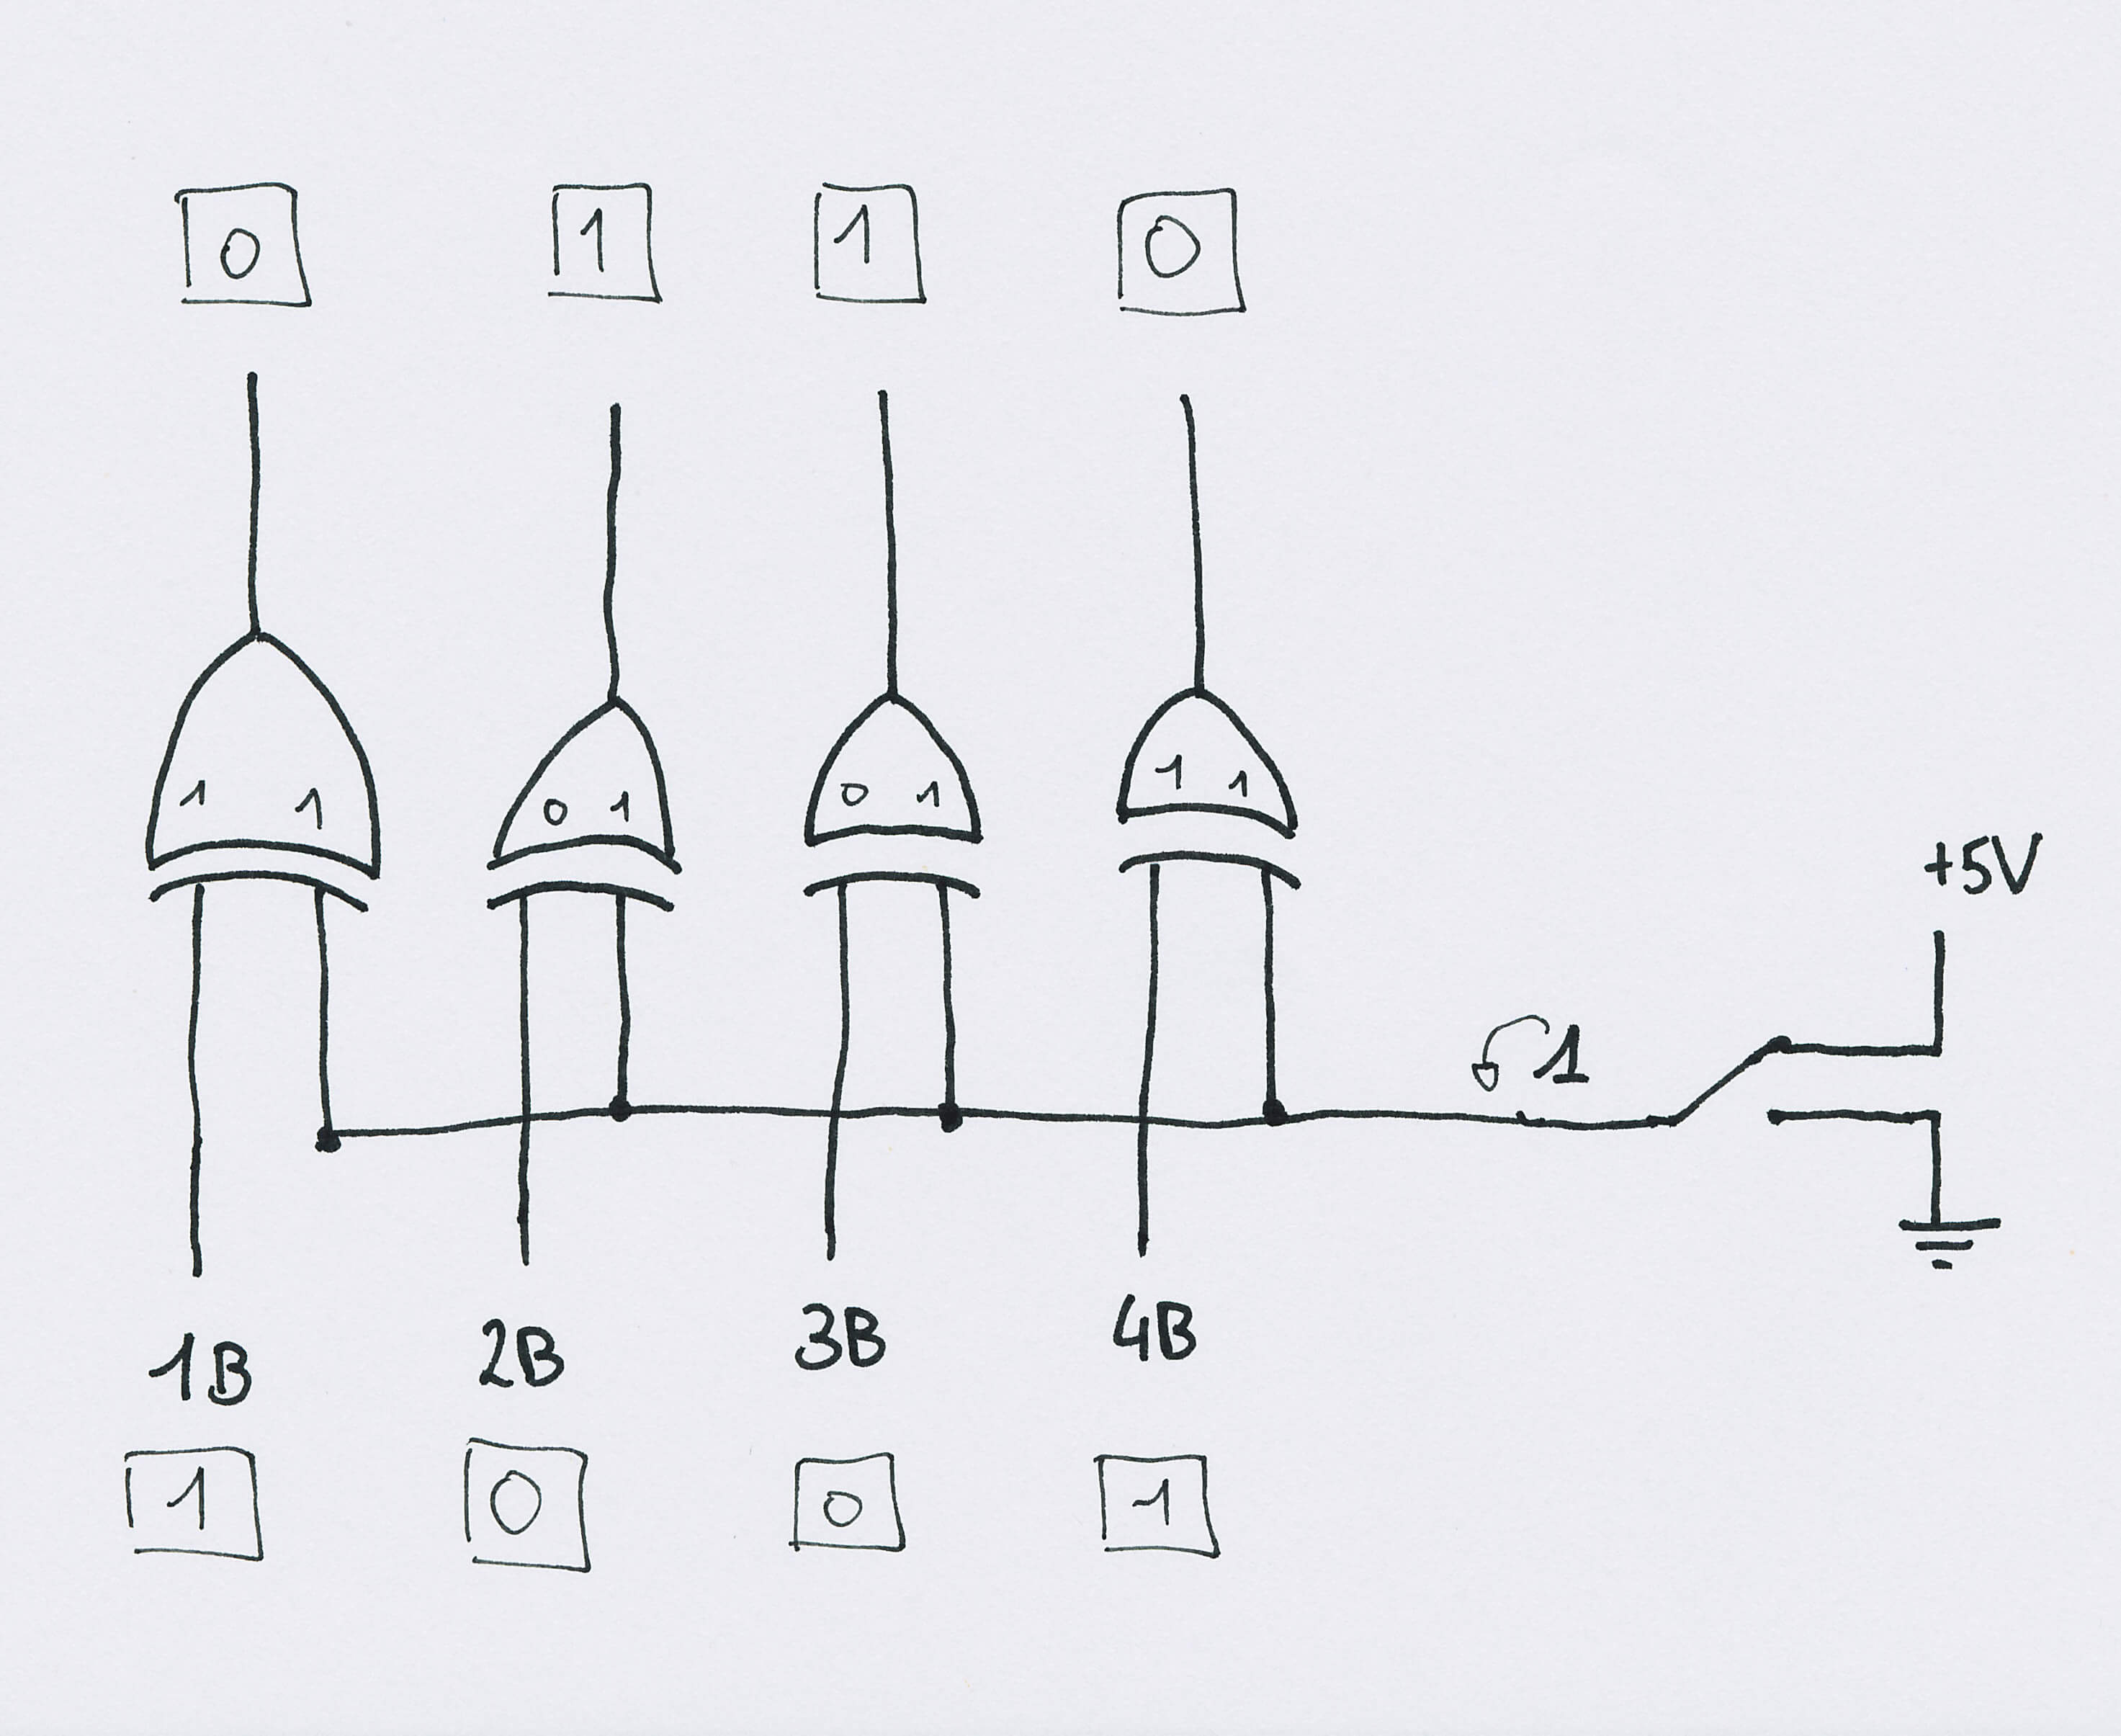 0 1 1 0
1 1 0 1 0 1 1 1
+5V
1
1B 2B 3B 4B
1 0 0 1